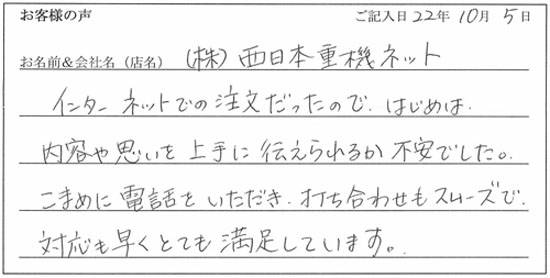 お客様の声 ご記入日 22年 10月 5日
お名前&会社名(店名) (株)西日本重機ネット
インターネットでの注文だったので、はじめは、
内容や思いを上手に伝えられるか不安でした。
こまめに電話をいただき、打ち合わせもスムーズで、
対応も早くとても満足しています。